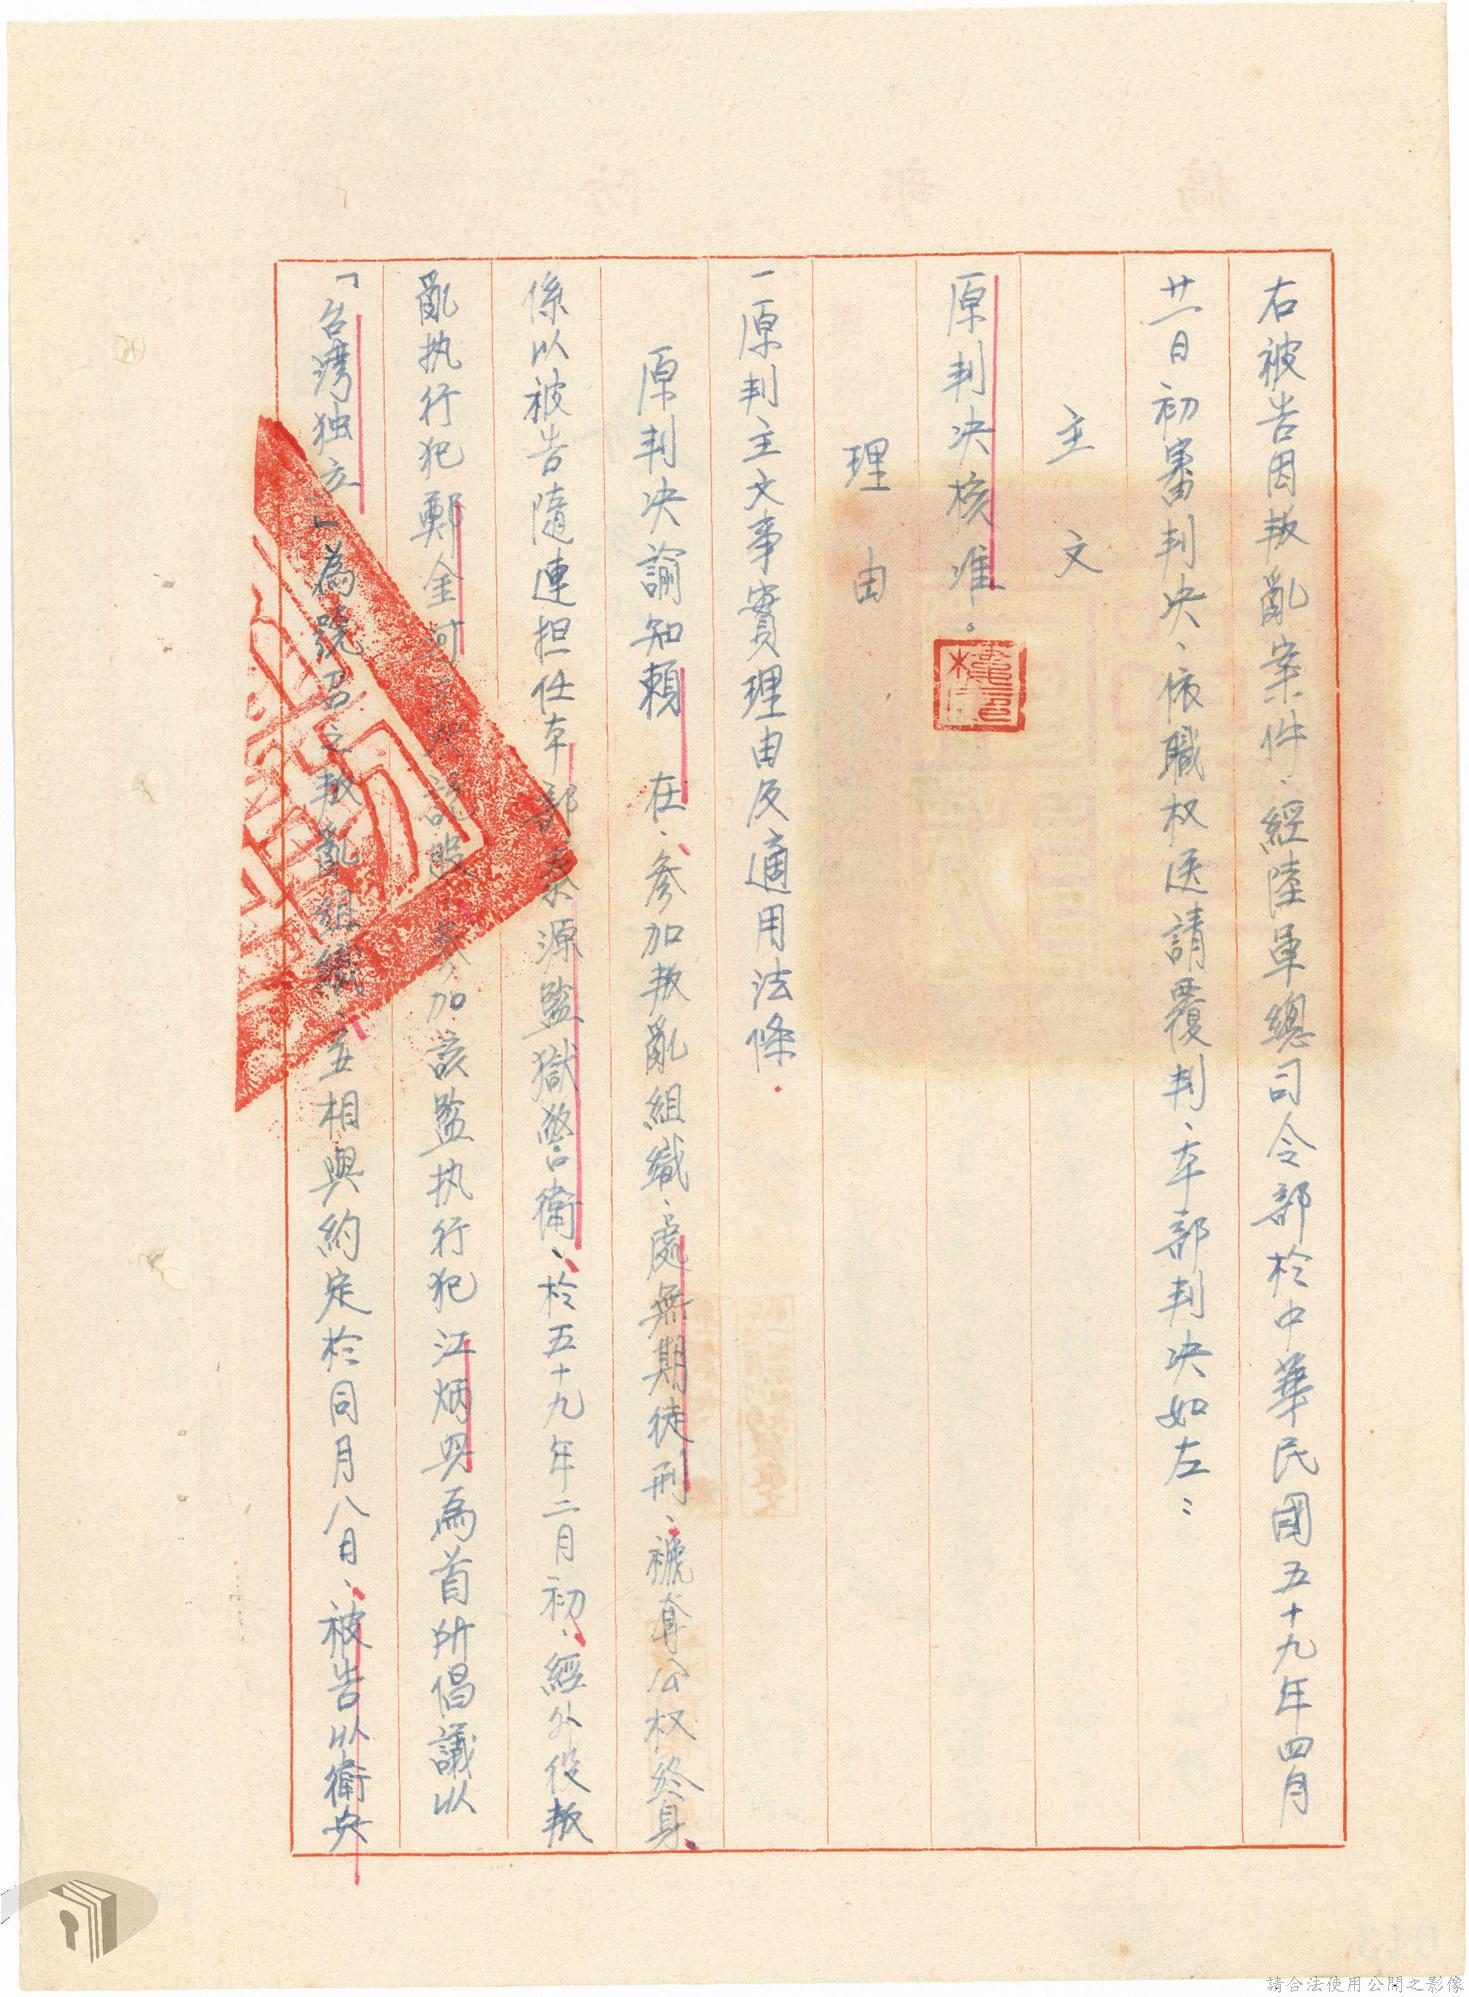 右被告因叛亂案件、經陸軍總司令部於中華民國五十九年四月
廿一日初審判决、依職权送請覆判、本部判决如左：
主文
原判决核准。
理由
一原判主文事實理由及適用法條．
原判决諭知賴 在、參加叛亂組織、處無期徒刑、褫奪公权終身
係以被告隨連担任本部泰源監獄警衛、於五十九年二月初、經外役叛
亂执行犯鄭金河 說服、參加該監执行犯江炳興為首所倡議以
「台湾独立」為號召之叛亂組織、並相與約定於同月八日、被告以衛兵
請合法使用公開之影像